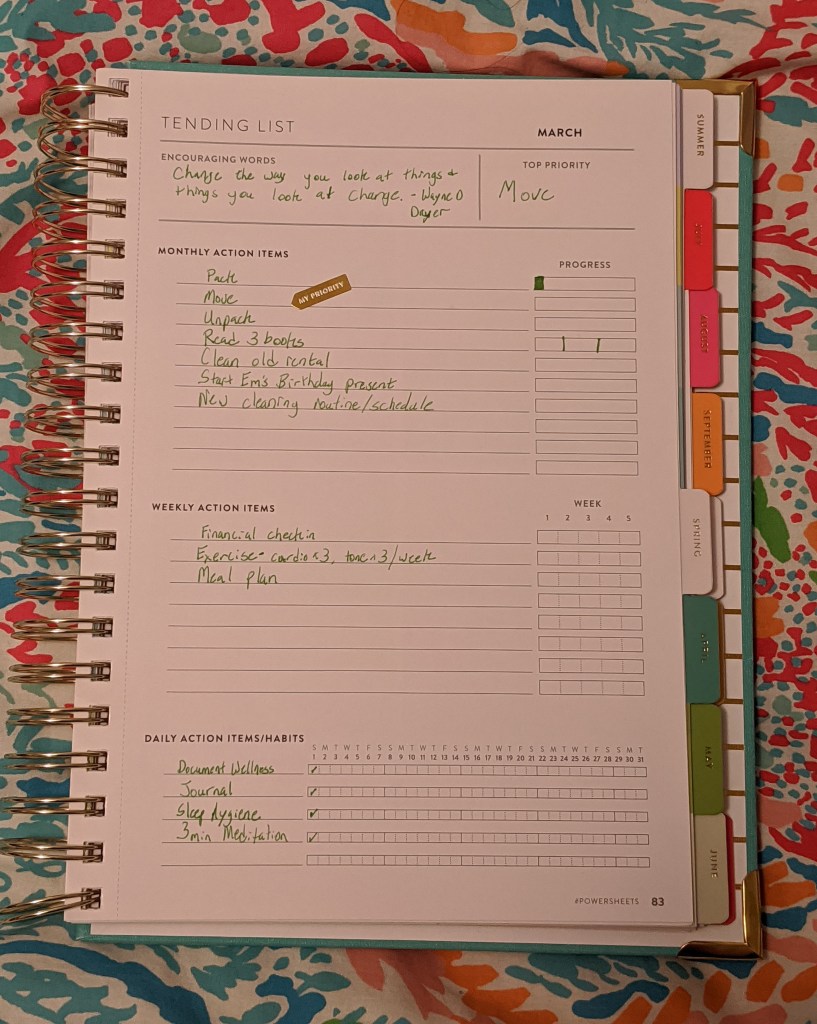 TENDING LIST
MARCH
ENCOURAGING WORDS
Change the way you look at things &
things you look at change. - Wayne D
Dayer
TOP PRIORITY
Move
MONTHLY ACTION ITEMS
PROGRESS
Pack
Move
MY PRIORITY
Unpack
Read 3 books
Clean old rental
Start Em's Birthday present
New cleaning routine/schedule
WEEKLY ACTION ITEMS
WEEK
1 2 3 4 5
Financial checkin
Exercise - cardio x3, tone x3/week
Meal plan
DAILY ACTION ITEMS/HABITS
S M T W T F S S M T W T F S S M T W T F S S M T W T F S S M T
1 2 3 4 5 6 7 8 9 10 11 12 13 14 15 16 17 18 19 20 21 22 23 24 25 26 27 28 29 30 31
Document Wellness
Journal
Sleep Hygiene
3min Meditation
#POWERSHEETS 83
SUMMER
JULY
AUGUST
SEPTEMBER
SPRING
APRIL
MAY
JUNE